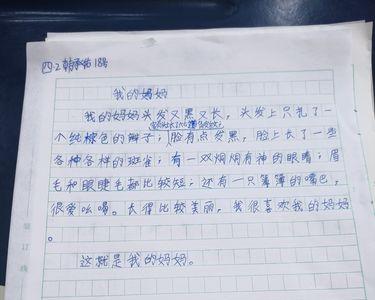 四.2 韩承佑 18号
我的妈妈
我的妈妈头发又黑又长，头发上只扎了一
个纯棕色的辫子；脸有点发黑，脸上长了一些
各种各样的斑雀；有一双炯炯有神的眼睛；眉
毛和眼睫毛都比较短；还有一只薄薄的嘴巴，
很爱吆喝。长得比较美丽，我很喜欢我的妈妈
。
这就是我的妈妈。